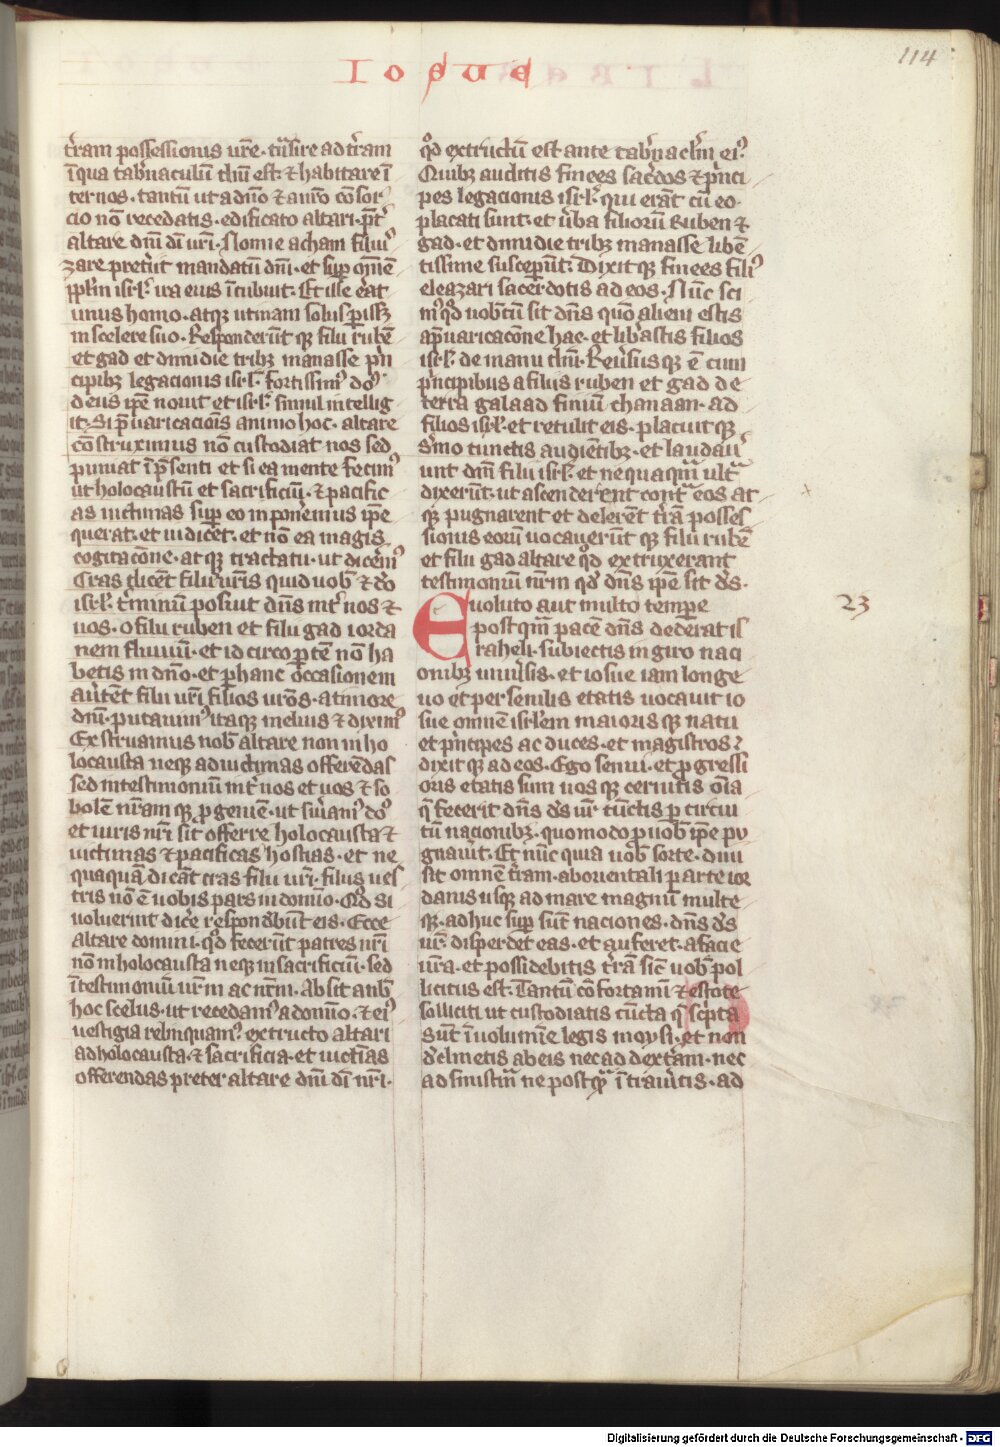 Iosue
114
t̄ram possessionis ur̄e · tn̄sire ad t̄ram
ī qua tab̄naculū dn̄i est · ⁊ habitare ī
ter nos · tantū ut a dn̄o ⁊ a nr̄o cōsor
cio nō recedatis · edificato altari · p̄t̄
altare dn̄i di ur̄i · Nonne acham filiꝰ
zare preteriit mandatū dn̄i · et sup̄ om̄ē
pp̄lm isr̄l · ira eius īcubuit · Et ille erat
unus homo · atqꝫ utinam solus p̄issꝫ
in scelere suo · Responder̄t qꝫ filii rubē
et gad et dimidie tribꝫ manasse p̄n
cipibꝫ legacionis isr̄l · fortissimꝰ dē
deus ip̄e nouit et isr̄l · simul intellig
it · Si p̄uaricacōis animo hoc · altare
cōstruximus nō custodiat nos sed
puniat ī p̄senti et si ea mente fecimꝰ
ut holocaustū et sacrificiū · ⁊ pacific
as uictimas sup̄ eo inponeremus ip̄e
querat · et iudicet · et nō ea magis
cogitacōne · atqꝫ tractatu · ut dicerēꝰ
Cras dicēt filii ur̄i nr̄is quid uob̄ ⁊ dō
isr̄l · t̄minū posuit dn̄s int̄ nos ⁊
uos · o filii ruben et filii gad iorda
nem fluuiū · et id circo p̄tē nō ha
betis in dn̄o · et p̄ hanc occasionem
au̅tēt filii ur̄i filios nr̄os · a timore
dn̄i · putauimꝰ itaqꝫ melius ⁊ diximꝰ
Exstruamus nob̄ altare non in ho
locausta neqꝫ ad uictimas offerēdas
sed in testimoniū int̄ nos et uos ⁊ so
bolē nr̄am qꝫ p̄geniē · ut s̄uiamꝰ dn̄o
et iuris nr̄i sit offerre holocausta ⁊
uictimas ⁊ pacificas hostias · et ne
quaquā dicāt cras filii ur̄i · filiis ues
tris nō ē uobis pars in domīo · Qd̄ si
uoluerint dicere respond̄būt eis · Ecce
altare domini · qd̄ fecer̄t patres nr̄i
nō in holocausta neqꝫ in sacrificiū · sed
ī testimoniū ur̄m ac nr̄m · Absit a nob̄
hoc scelus · ut recedamꝰ a domīo · ⁊ eiꝰ
uestigia relinquamꝰ extructo altari
ad holocausta · ⁊ sacrificia · et uictīas
offerendas preter altare dn̄i di nr̄i ·
qd̄ extructū est ante tab̄nacl̄m eiꝰ
Quibꝫ auditis finees sac̄dos ⁊ p̄nci
pes legacionis isr̄l · qui erāt cū eo ·
placati sunt · et u̅ba filiorū Ruben ⁊
gad · et dimidie tribꝫ manasse libē
tissime suscep̄ūt · Dixit qꝫ finees filiꝰ
eleazari sacerdotis ad eos · Nūc sci
mꝰ qd̄ nobcū sit dn̄s quō alieni estis
a p̄uaricacōne hac · et lib̄astis filios
isr̄l · de manu dn̄i · Reu̅sus qꝫ ē cum
p̄ncipibus a filiis ruben et gad de
terra galaad finiū chanaan · ad
filios isr̄l · et retulit eis · placuit qꝫ
s̄mo cunctis audiētibꝫ · et laudau
unt dm̄ filii isr̄l · et nequaqm̄ ult̄
dixer̄t · ut ascenderent cont̄ eos at
qꝫ pugnarent et delerēt t̄rā posses
sionis eorū uocauer̄t qꝫ filii rubē
et filii gad altare qd̄ extruxerant
testimoniū nr̄m qd̄ dn̄s ip̄e sit ds̄ ·
Euoluto aut multo temp̄e
postqm̄ pacē dn̄s dederat is
raheli · subiectis in giro naci
onibꝫ uniu̅sis · et iosue iam longe
uo et persenilis etatis uocauit io
sue omnē isr̄lem maioris qꝫ natu
et p̄ncipes ac duces · et magistros ⁊
dixit qꝫ ad eos · Ego senui · et p̄gressi
oris etatis sum uos qꝫ cernitis om̄ia
q̄ fecerit dn̄s ds̄ ur̄ · cūctis p̄ circui
tū nacionibꝫ · quomodo p̄ uob̄ ip̄e pu
gnau̅it · Et nūc quia uob̄ sorte · diui
sit omnē t̄ram · ab orientali parte ior
danis usqꝫ ad mare magnū multe
qꝫ · adhuc sup̄ sūt naciones · dn̄s ds̄
ur̄ · disperdet eas · et auferet · a facie
ur̄a · et possidebitis t̄rā sic̄ uob̄ pol
licitus est · Tantū cōfortamī ⁊ estote
solliciti ut custodiatis cūcta q̄ sc̄pta
sūt ī uolumīe legis moysi · et non
d̄clinetis ab eis nec ad dextam · nec
ad sinistrā ne postqꝫ ītrau̅itis · ad
23
Digitalisierung gefördert durch die Deutsche Forschungsgemeinschaft - DFG